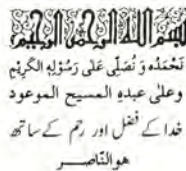 بسم اللہ الرحمن الرحیم
نَحْمَدُہٗ وَ نُصَلِّی عَلٰی رَسُوْلِہِ الْکَرِیْمِ
وعلیٰ عبدہِ المسیح الموعود
خدا کے فضل اور رحم کے ساتھ
ھو النّاصر